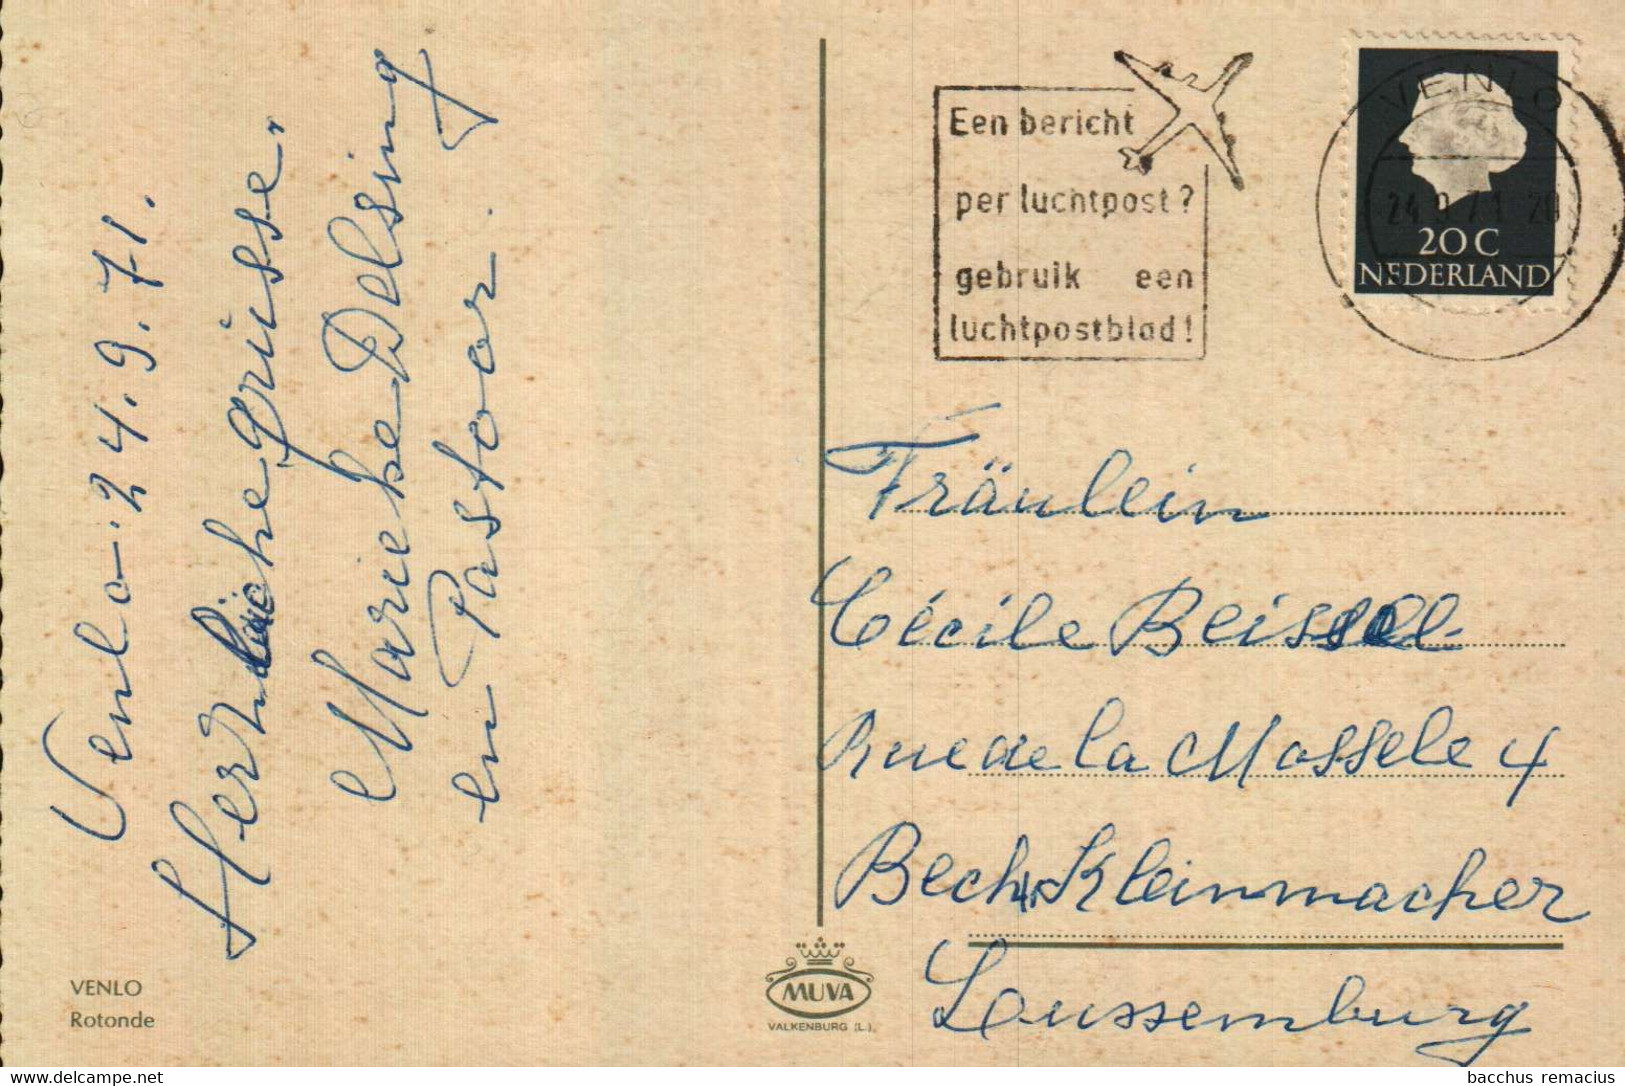 Venlo - 24.9.71.
Herzliche grüsse.
Marieke Delsing
en Pastoor.
VENLO
Rotonde
MUVA
VALKENBURG (L.).
Een bericht
per luchtpost?
gebruik een
luchtpostblad!
VENLO
24.9.71 20
20C
NEDERLAND
Fräulein
Cécile Beissel
Rue de la Mossele 4
Bech-Kleinmacher
Loussemburg
www.delcampe.net
bacchus remacius